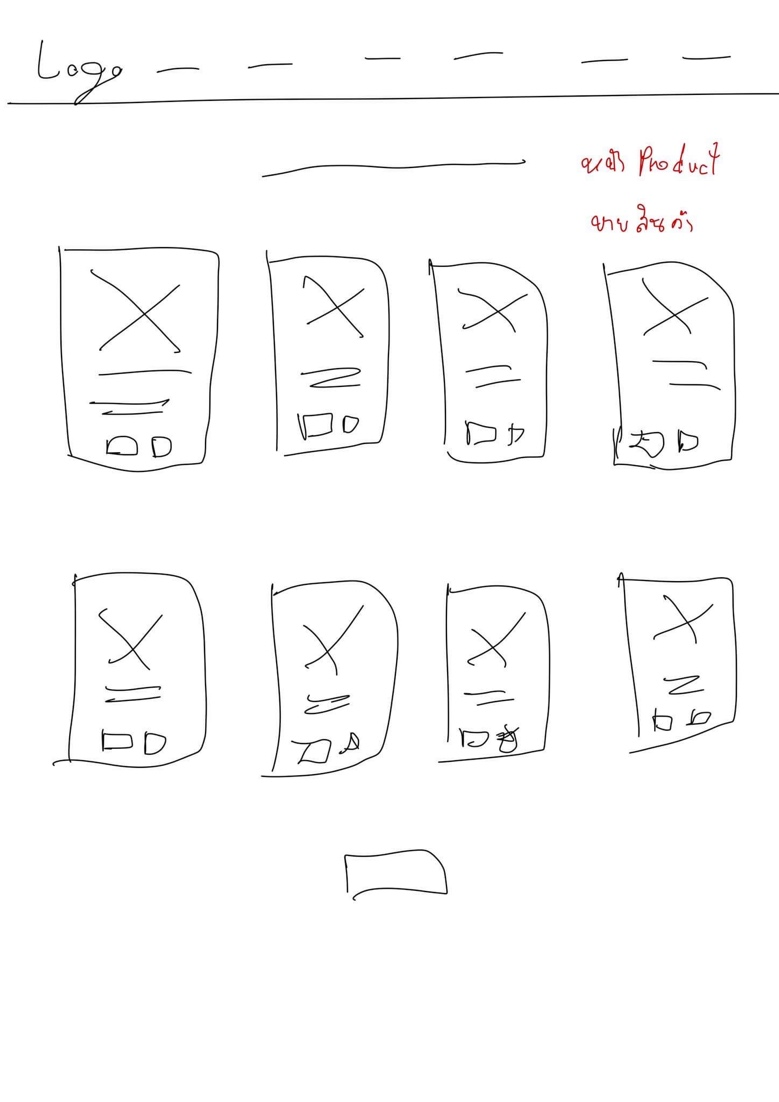 Logo
หน้า Product
ขายสินค้า